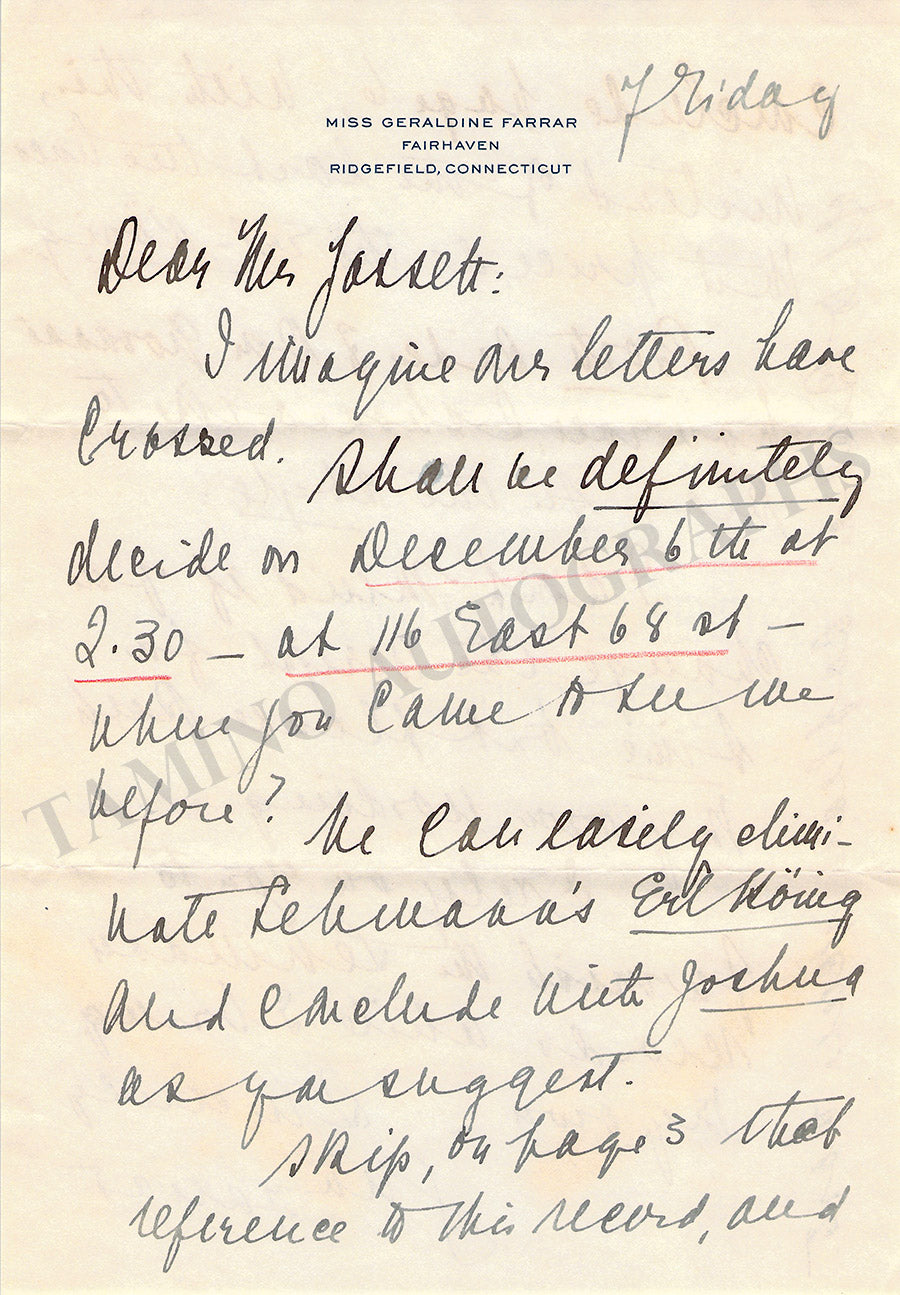 Friday
MISS GERALDINE FARRAR
FAIRHAVEN
RIDGEFIELD, CONNECTICUT
Dear Mr Jossett:
I imagine our letters have
Crossed. Shall we definitely
decide on December 6th at
2.30 — at 116 East 68 st —
where you came to see me
before? We can easily elimi-
nate Lehmann's Erl König
and conclude with Joshua
as you suggest.
Skip, on page 3 that
reference to this record, and
TAMINO AUTOGRAPHS